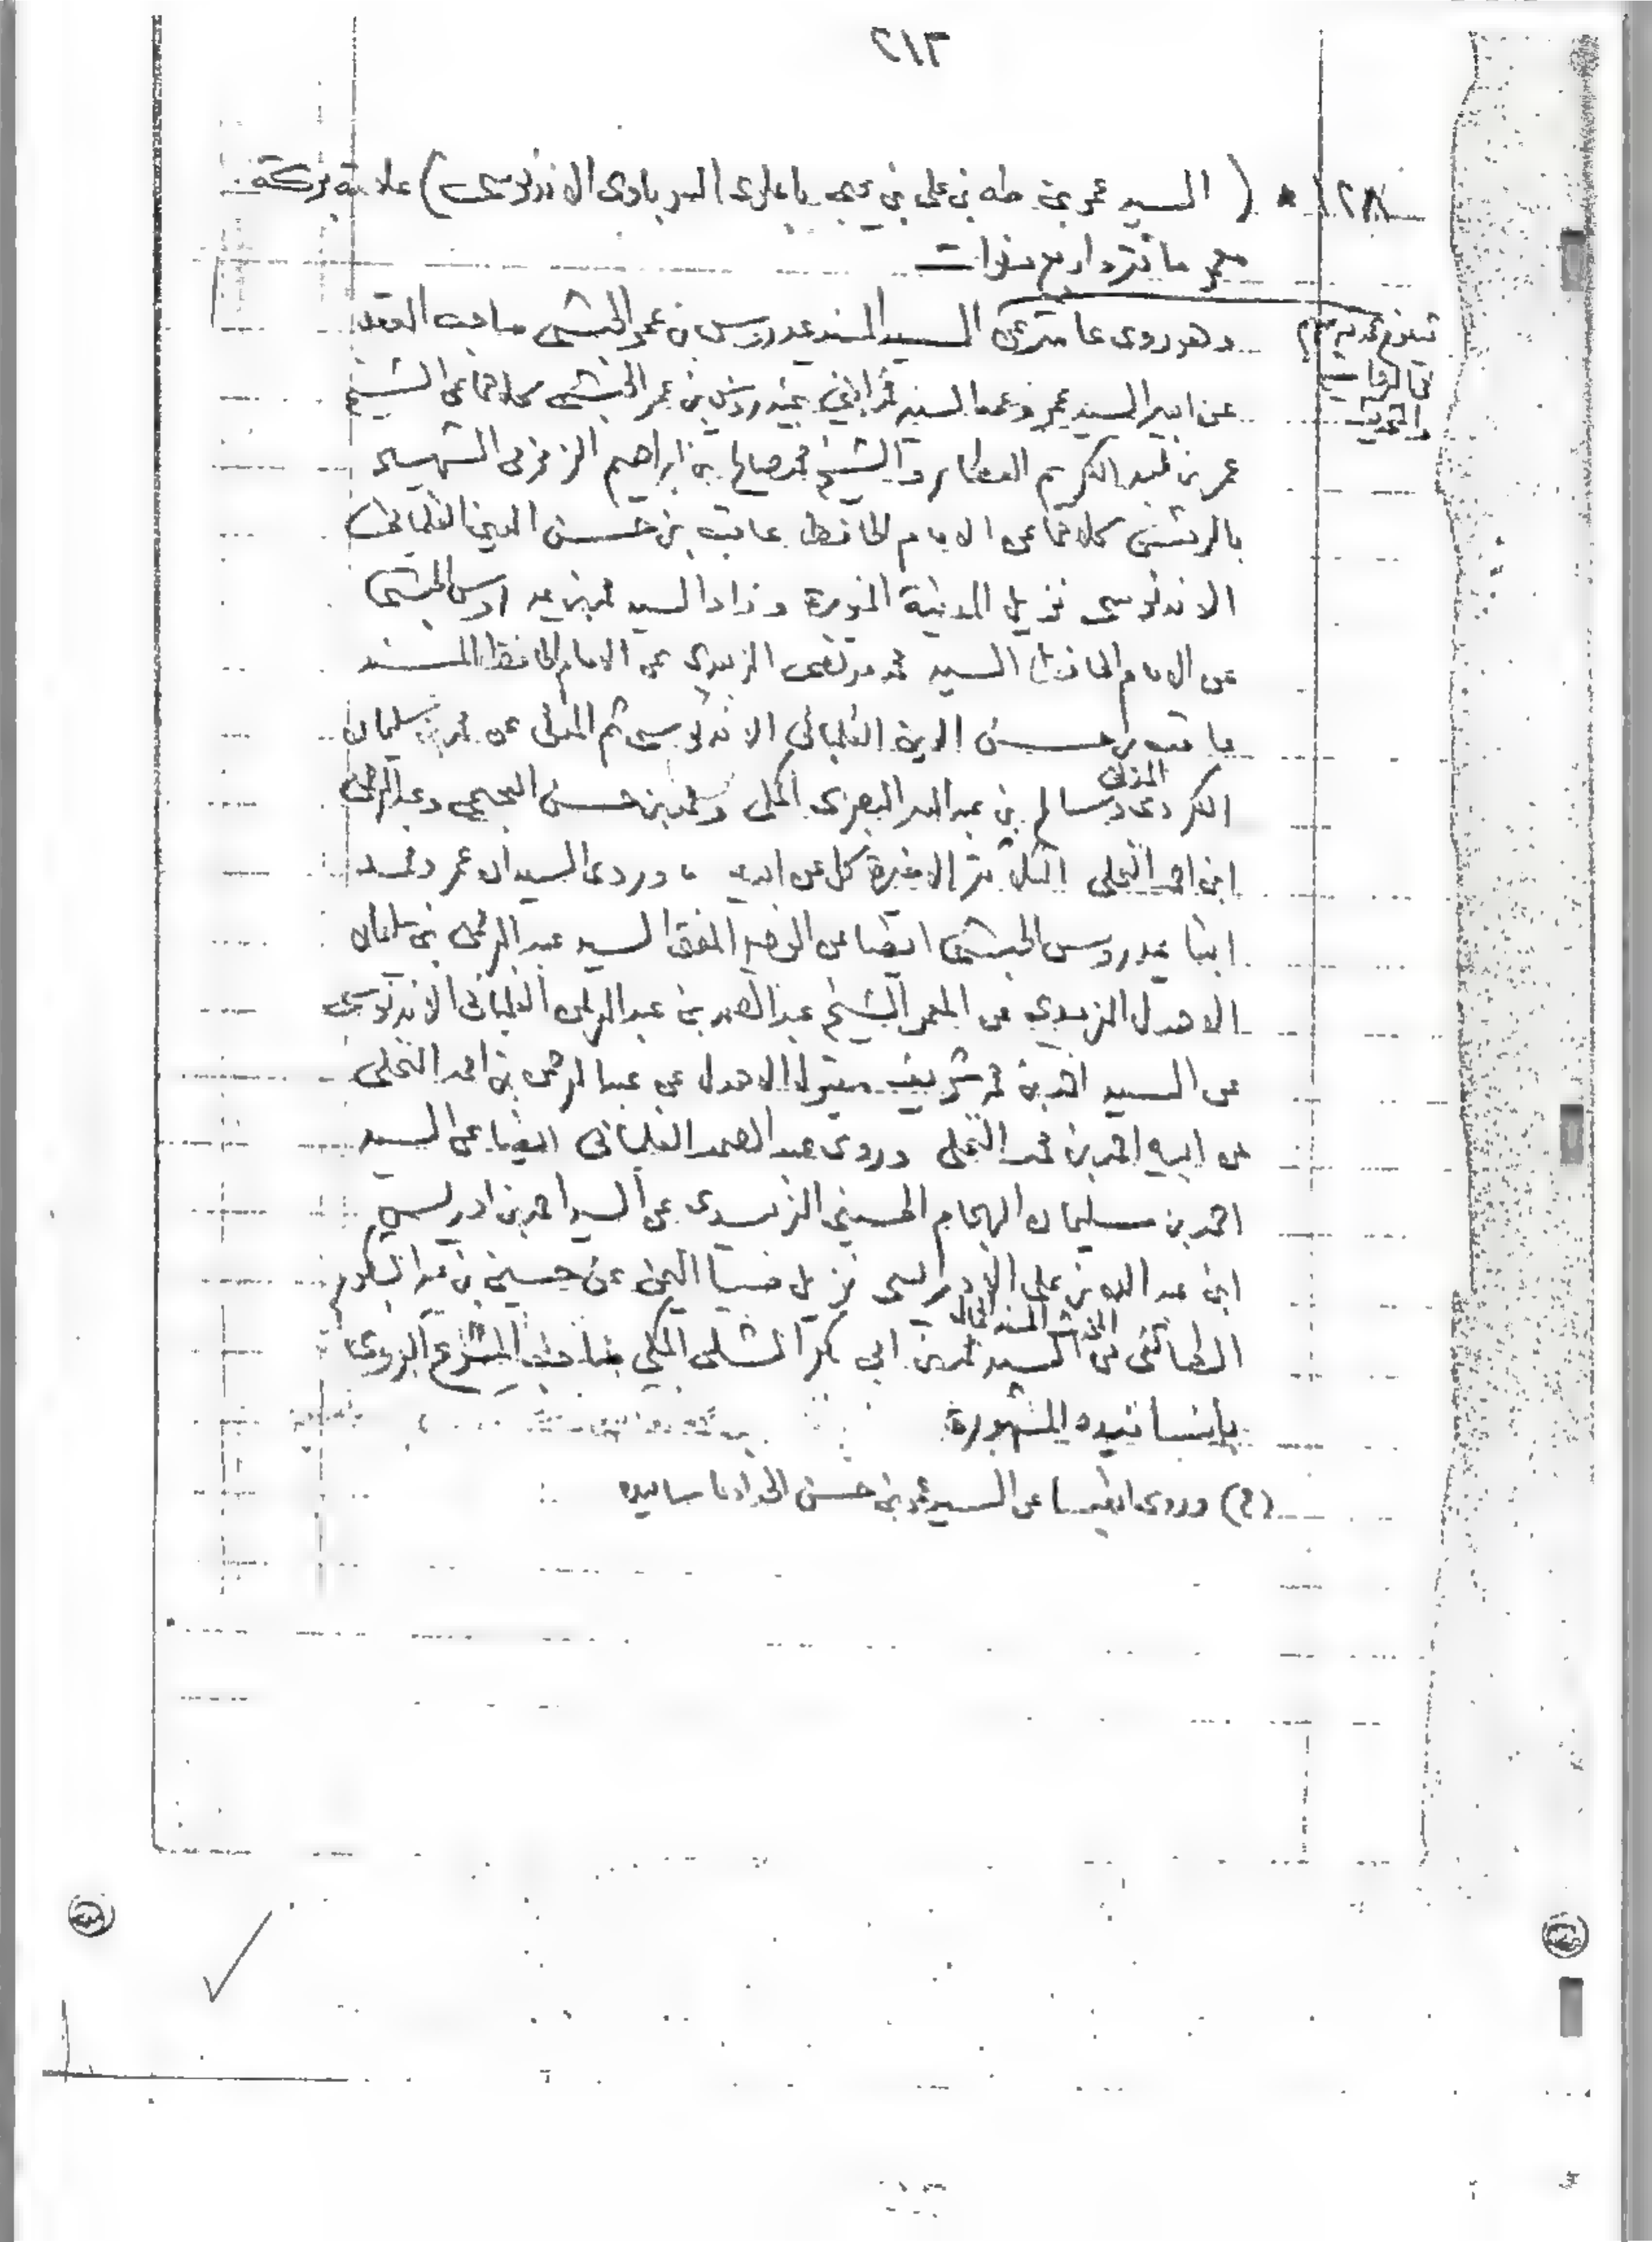 ٢١٣
١٢٨ * ( السيد عمر بن طه بن علي بن يحيى باعلوى السرباوى الاندنوسى ) علامة بركة
معمر مائة واربع سنوات
وهو روى عاليا عن السيد المسند عيدروس بن عمر الحبشى صاحب العقد
عن ابيه السيد عمر وعمه السيد محمد ابنى عيدروس بن عمر الحبشى كلاهما عن الشيخ
عمر بن عبد الكريم العطار والشيخ محمد صالح بن ابراهيم الزمزمى الشهير
بالريس كلاهما عن الامام الحافظ عاقب بن حسن الدين الفلمبانى
الاندنوسى نزيل المدينة المنورة وزاد السيد محمد بن عيدروس الحبشى
عن الامام الحافظ السيد محمد مرتضى الزبيدى عن الامام الحافظ المسند
عاقب بن حسن الدين الفلمبانى الاندنوسى ثم المدنى عن محمد بن سليمان
الكردى المدنى وسالم بن عبد الله البصرى المكى ومحمد بن حسن العجيمى وعبد الرحمن
ابن احمد النخلى الثلاثة الاخيرة كل عن ابيه ، وروى السيدان عمر ومحمد
ابنا عيدروس الحبشى ايضا عن الوجيه المفتى السيد عبد الرحمن بن سليمان
الاهدل الزبيدي عن المعمر الشيخ عبد الصمد بن عبد الرحمن الفلمبانى الاندنوسى
عن السيد احمد بن محمد شريف مقبول الاهدل عن عبد الرحمن بن احمد النخلى
عن ابيه احمد بن محمد النخلى وروى عبد الصمد الفلمبانى ايضا عن السيد
احمد بن سليمان الهجام الحسينى الزبيدى عن السيد احمد بن ادريس
ابن عبد الله بن على الادريسى نزيل اليمن عن حسين بن عبد الشكور
الطائفى عن المحدث المسند السيد محمد بن ابى بكر الشلى المكى صاحب المشرع الروى
باسانيده المشهورة
(ح) وروى ايضا عن السيد محمد بن حسن الحداد باسانيده